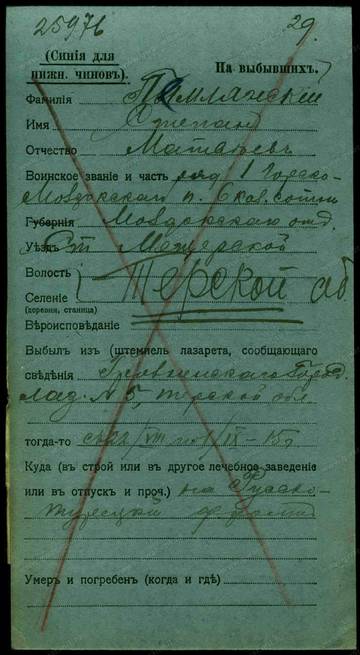 25976 29.
(Синія для нижн. чиновъ).
На выбывшихъ.
Фамилія
Имя Степан
Отчество Матвѣев
Воинское званіе и часть ряд 1 Горско-
Моздокскаго п. 6 кав. сотни
Губернія Моздокскаго отд.
Уѣздъ ст
Волость
Терской об
Селеніе
(деревня, станица)
Вѣроисповѣданіе
Выбылъ изъ (штемпель лазарета, сообщающаго
свѣдѣнія Грозненскаго Город.
Лаз. N 5, Терской обл.
тогда-то VIII по 1/IX - 15г
Куда (въ строй или въ другое лечебное заведеніе
или въ отпускъ и проч.) на Русско-
турецкій фронт
Умеръ и погребенъ (когда и гдѣ)